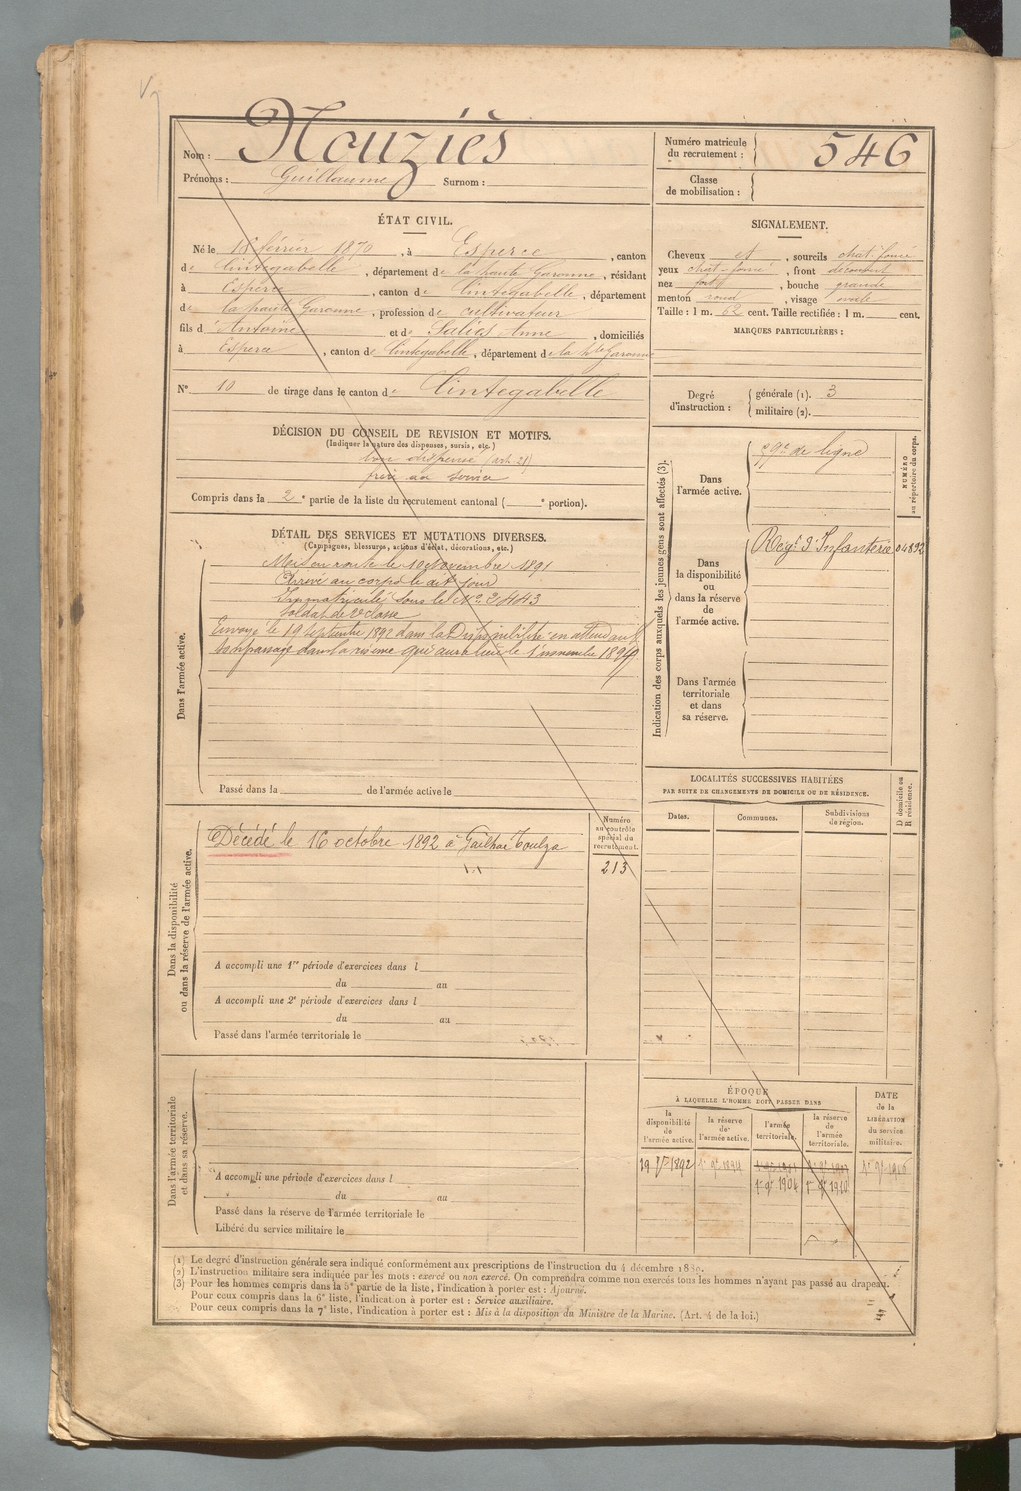 Nom : Nouziès
Prénoms : Guillaume Surnom :
Numéro matricule du recrutement : 546
Classe de mobilisation :
ÉTAT CIVIL.
Né le 18 février 1870, à Esperce, canton
de Cintegabelle, département de la haute Garonne, résidant
à Esperce, canton de Cintegabelle, département
de la haute Garonne, profession de cultivateur
fils d'Antoine et de Saliès Anne, domiciliés
à Esperce, canton de Cintegabelle, département de la Hte Garonne
N° 10 de tirage dans le canton de Cintegabelle
SIGNALEMENT.
Cheveux et, sourcils chat. foncé
yeux chat-foncé, front découvert
nez fort, bouche grande
menton rond, visage ovale
Taille : 1 m. 62 cent. Taille rectifiée : 1 m. cent.
MARQUES PARTICULIÈRES :
Degré d'instruction : générale (1). 3
militaire (2).
DÉCISION DU CONSEIL DE REVISION ET MOTIFS.
(Indiquer la nature des dispenses, sursis, etc.)
bon dispensé (art. 21)
au service
Compris dans la 2e partie de la liste du recrutement cantonal ( e portion).
DÉTAIL DES SERVICES ET MUTATIONS DIVERSES.
(Campagnes, blessures, actions d'éclat, décorations, etc.)
Dans l'armée active.
Mis en route le 10 novembre 1891
Arrivé au corps le dit jour
Immatriculé sous le No 2443
Soldat de 2e classe
Envoyé le 19 septembre 1892 dans la Disponibilité en attendant
son passage dans la réserve qui aura lieu le 1er novembre 1894
Passé dans la de l'armée active le
Indication des corps auxquels les jeunes gens sont affectés (3).
NUMÉRO au répertoire du corps.
Dans l'armée active.
de ligne
Dans la disponibilité ou dans la réserve de l'armée active.
Regt d'Infanterie 04892
Dans l'armée territoriale et dans sa réserve.
LOCALITÉS SUCCESSIVES HABITÉES
PAR SUITE DE CHANGEMENTS DE DOMICILE OU DE RÉSIDENCE.
Dates. Communes. Subdivisions de région. D domicile ou R résidence.
Dans la disponibilité ou dans la réserve de l'armée active.
Numéro au contrôle spécial du recrutement.
213
Décédé le 16 octobre 1892 à Gailhac Toulza
A accompli une 1re période d'exercices dans l
du au
A accompli une 2e période d'exercices dans l
du au
Passé dans l'armée territoriale le
Dans l'armée territoriale et dans sa réserve.
A accompli une période d'exercices dans l
du au
Passé dans la réserve de l'armée territoriale le
Libéré du service militaire le
ÉPOQUE
À LAQUELLE L'HOMME DOIT PASSER DANS
la disponibilité de l'armée active. la réserve de l'armée active. l'armée territoriale. la réserve de l'armée territoriale.
DATE de la LIBÉRATION du service militaire.
19 7bre 1892 1er 9bre 1894
1er 9bre 1904 1er 9bre 1910
(1) Le degré d'instruction générale sera indiqué conformément aux prescriptions de l'instruction du 4 décembre 1889.
(2) L'instruction militaire sera indiquée par les mots : exercé ou non exercé. On comprendra comme non exercés tous les hommes n'ayant pas passé au drapeau.
(3) Pour les hommes compris dans la 5e partie de la liste, l'indication à porter est : Ajourné.
Pour ceux compris dans la 6e liste, l'indication à porter est : Service auxiliaire.
Pour ceux compris dans la 7e liste, l'indication à porter est : Mis à la disposition du Ministre de la Marine. (Art. 4 de la loi.)